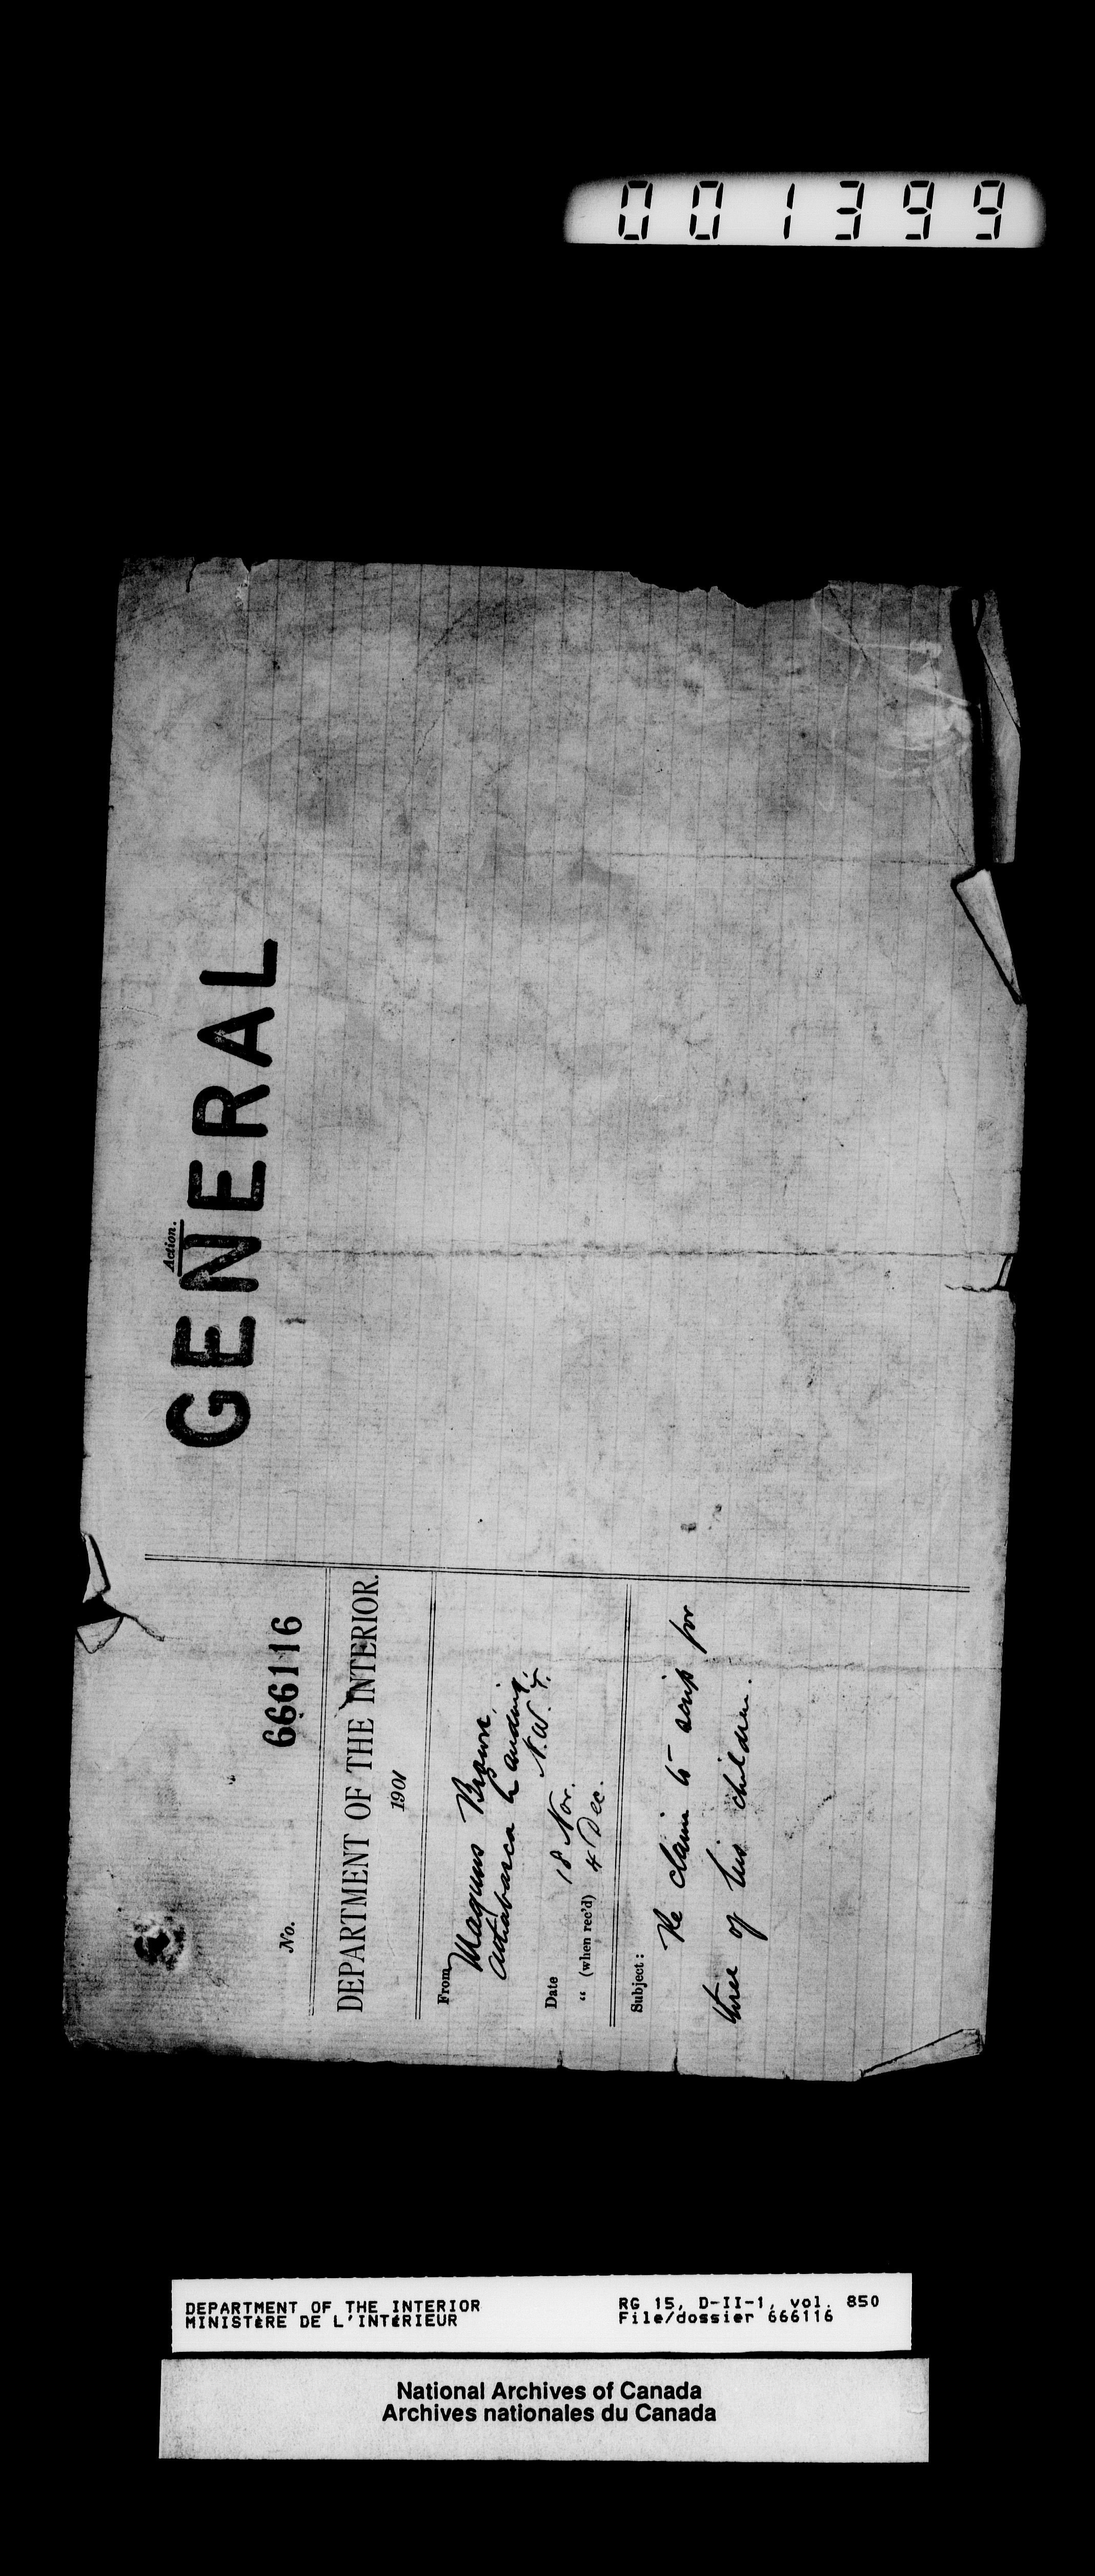 001399
No. 666116
DEPARTMENT OF THE INTERIOR.
1901
From Magnus Brown,
Athabasca Landing,
N.W.T.
Date 18 Nov.
" (when rec'd) 4 Dec.
Subject:
Re claim to scrip for
three of his children.
Action.
GENERAL
DEPARTMENT OF THE INTERIOR
MINISTÈRE DE L'INTÉRIEUR
RG 15, D-II-1, vol. 850
File/dossier 666116
National Archives of Canada
Archives nationales du Canada